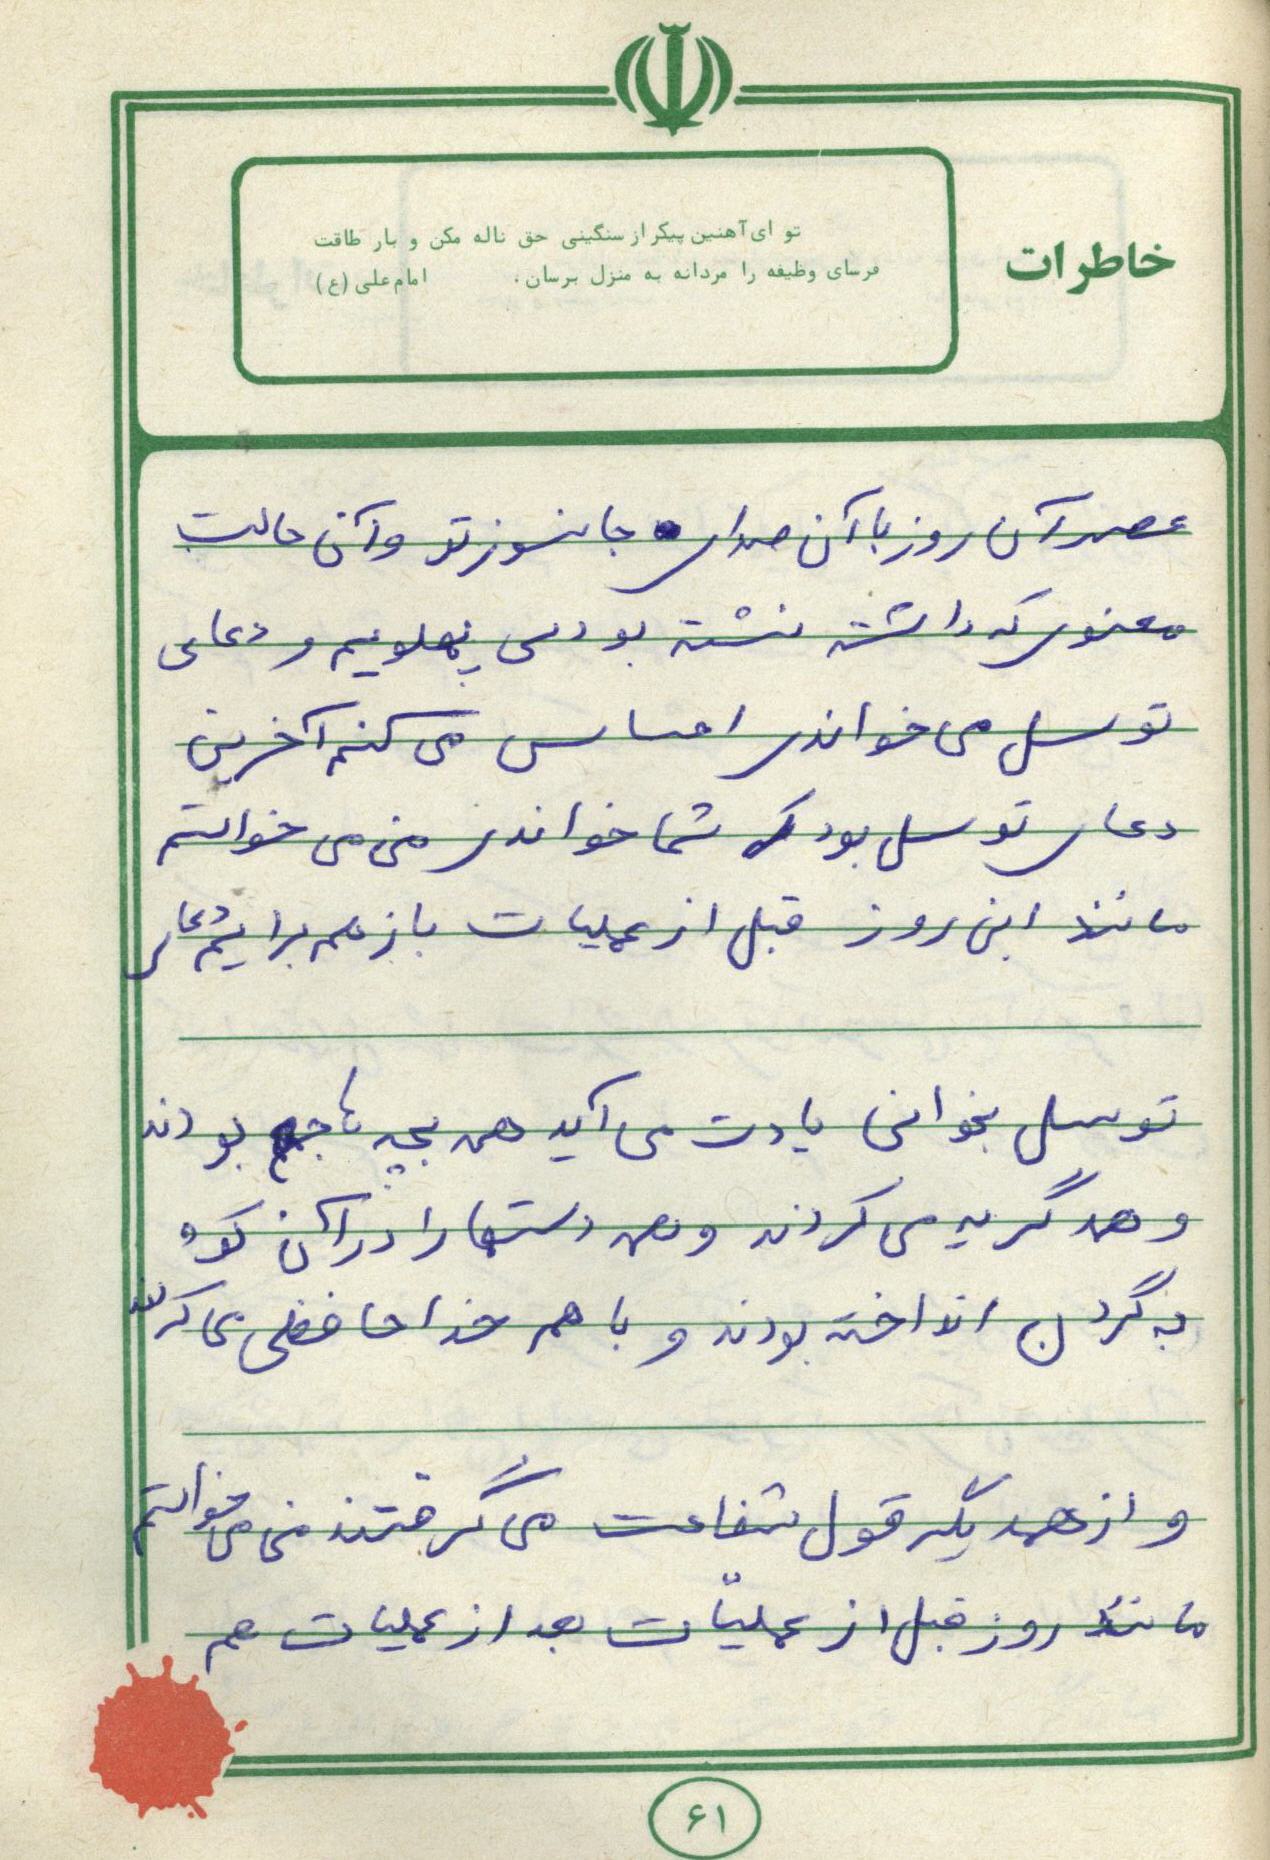 خاطرات
تو ای آهنین پیکر از سنگینی حق ناله مکن و بار طاقت
فرسای وظیفه را مردانه به منزل برسان. امام علی (ع)
عصر آن روز با آن صدای جانسوز تو و آن حالت
معنوی که داشته نشسته بودی پهلویم و دعای
توسل می خواندی احساس می کنم آخرین
دعای توسل بود که شما خواندی من می خواستم
مانند این روز قبل از عملیات باز هم برایم دعای
توسل بخوانی یادت می آید همه بچه ها جمع بودند
و همه گریه می کردند و همه دستها را در آن کوه
به گردن انداخته بودند و با هم خداحافظی می کردند
و از همدیگر قول شفاعت می گرفتند من می خواستم
مانند روز قبل از عملیّات بعد از عملیات هم
۶۱